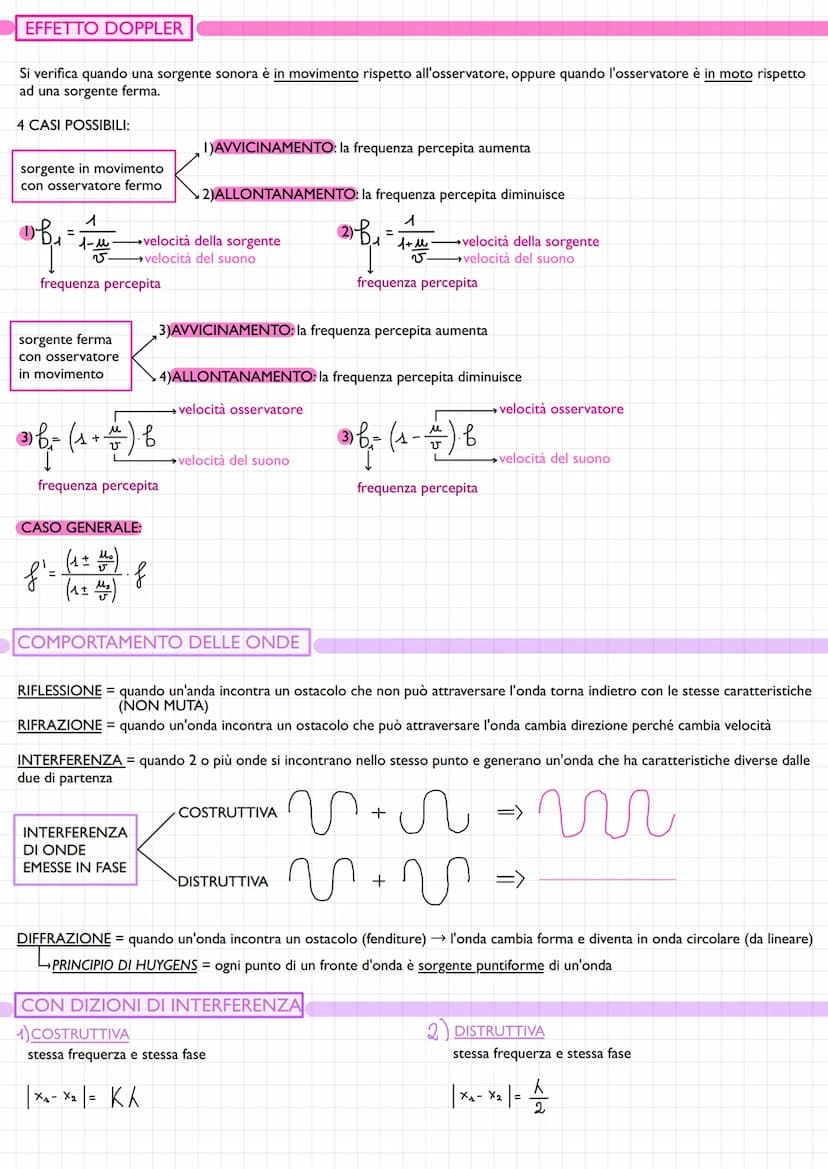 EFFETTO DOPPLER
Si verifica quando una sorgente sonora è in movimento rispetto all'osservatore, oppure quando l'osservatore è in moto rispetto
ad una sorgente ferma.
4 CASI POSSIBILI:
sorgente in movimento
con osservatore fermo
1)AVVICINAMENTO: la frequenza percepita aumenta
2)ALLONTANAMENTO: la frequenza percepita diminuisce
1) f₁ = 1/(1-u/v) → velocità della sorgente
→ velocità del suono
frequenza percepita
2) f₁ = 1/(1+u/v) → velocità della sorgente
→ velocità del suono
frequenza percepita
sorgente ferma
con osservatore
in movimento
3)AVVICINAMENTO: la frequenza percepita aumenta
4)ALLONTANAMENTO: la frequenza percepita diminuisce
velocità osservatore
3) f₁ = (1 + u/v)·f
velocità del suono
frequenza percepita
velocità osservatore
3) f₁ = (1 - u/v)·f
velocità del suono
frequenza percepita
CASO GENERALE:
f' = (1 ± u₀/v)/(1 ± uₛ/v) · f
COMPORTAMENTO DELLE ONDE
RIFLESSIONE = quando un'anda incontra un ostacolo che non può attraversare l'onda torna indietro con le stesse caratteristiche
(NON MUTA)
RIFRAZIONE = quando un'onda incontra un ostacolo che può attraversare l'onda cambia direzione perché cambia velocità
INTERFERENZA = quando 2 o più onde si incontrano nello stesso punto e generano un'onda che ha caratteristiche diverse dalle
due di partenza
INTERFERENZA
DI ONDE
EMESSE IN FASE
COSTRUTTIVA + =>
DISTRUTTIVA + =>
DIFFRAZIONE = quando un'onda incontra un ostacolo (fenditure) → l'onda cambia forma e diventa in onda circolare (da lineare)
→PRINCIPIO DI HUYGENS = ogni punto di un fronte d'onda è sorgente puntiforme di un'onda
CON DIZIONI DI INTERFERENZA
1)COSTRUTTIVA
stessa frequerza e stessa fase
|x₁ - x₂| = Kλ
2) DISTRUTTIVA
stessa frequerza e stessa fase
|x₁ - x₂| = λ/2